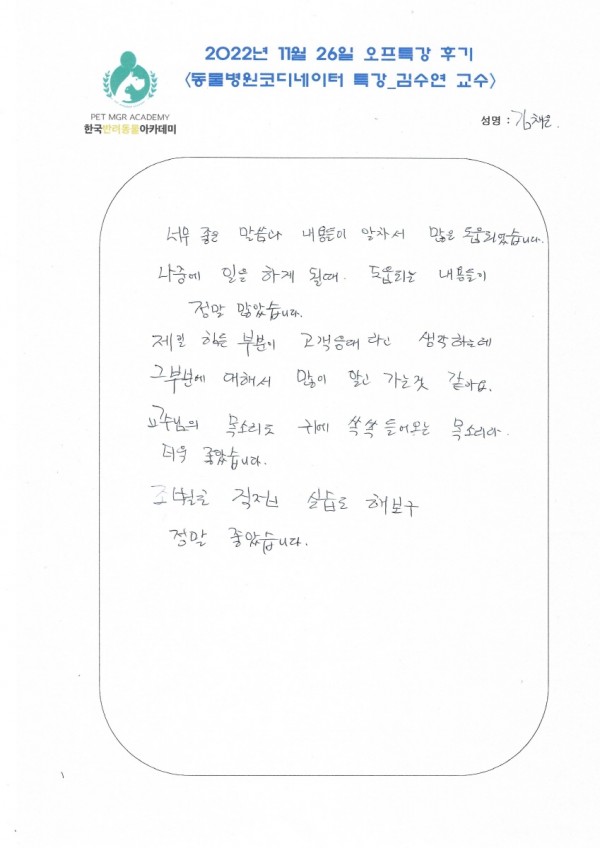 2022년 11월 26일 오프특강 후기
<동물병원코디네이터 특강_김수연 교수>
PET MGR ACADEMY
한국반려동물아카데미
성명 : 김채운
너무 좋은 말씀과 내용들이 알차서 많은 도움되었습니다.
나중에 일을 하게 될때. 도움되는 내용들이
정말 많았습니다.
제일 힘든 부분이 고객응대 라고 생각하는데
그부분에 대해서 많이 알고 가는것 같아요.
교수님의 목소리도 귀에 쏙쏙 들어오는 목소리라.
더욱 좋았습니다.
직접 실습도 해보구
정말 좋았습니다.